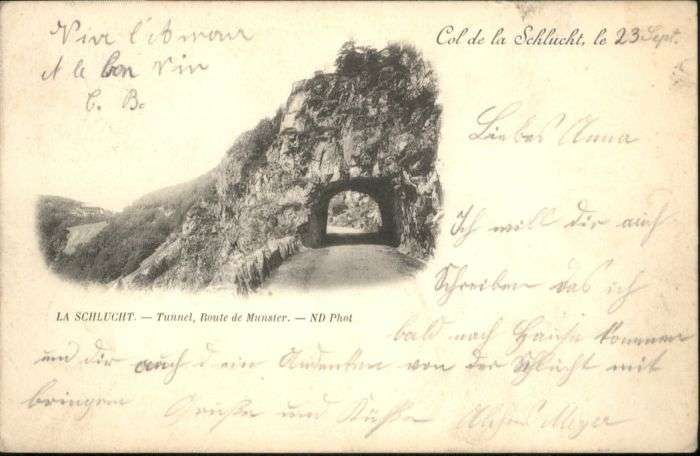 Vive l'Amour
et le bon Vin
C. B.
Col de la Schlucht, le 23 Sept.
Liebes Anna
Ich will dir auch
Schreiben das ich
LA SCHLUCHT. — Tunnel, Route de Munster. — ND Phot
bald nach Hause kommen
und dir auch ein Andenken von der Schlucht mit
bringen Grüße und Küße Meyer